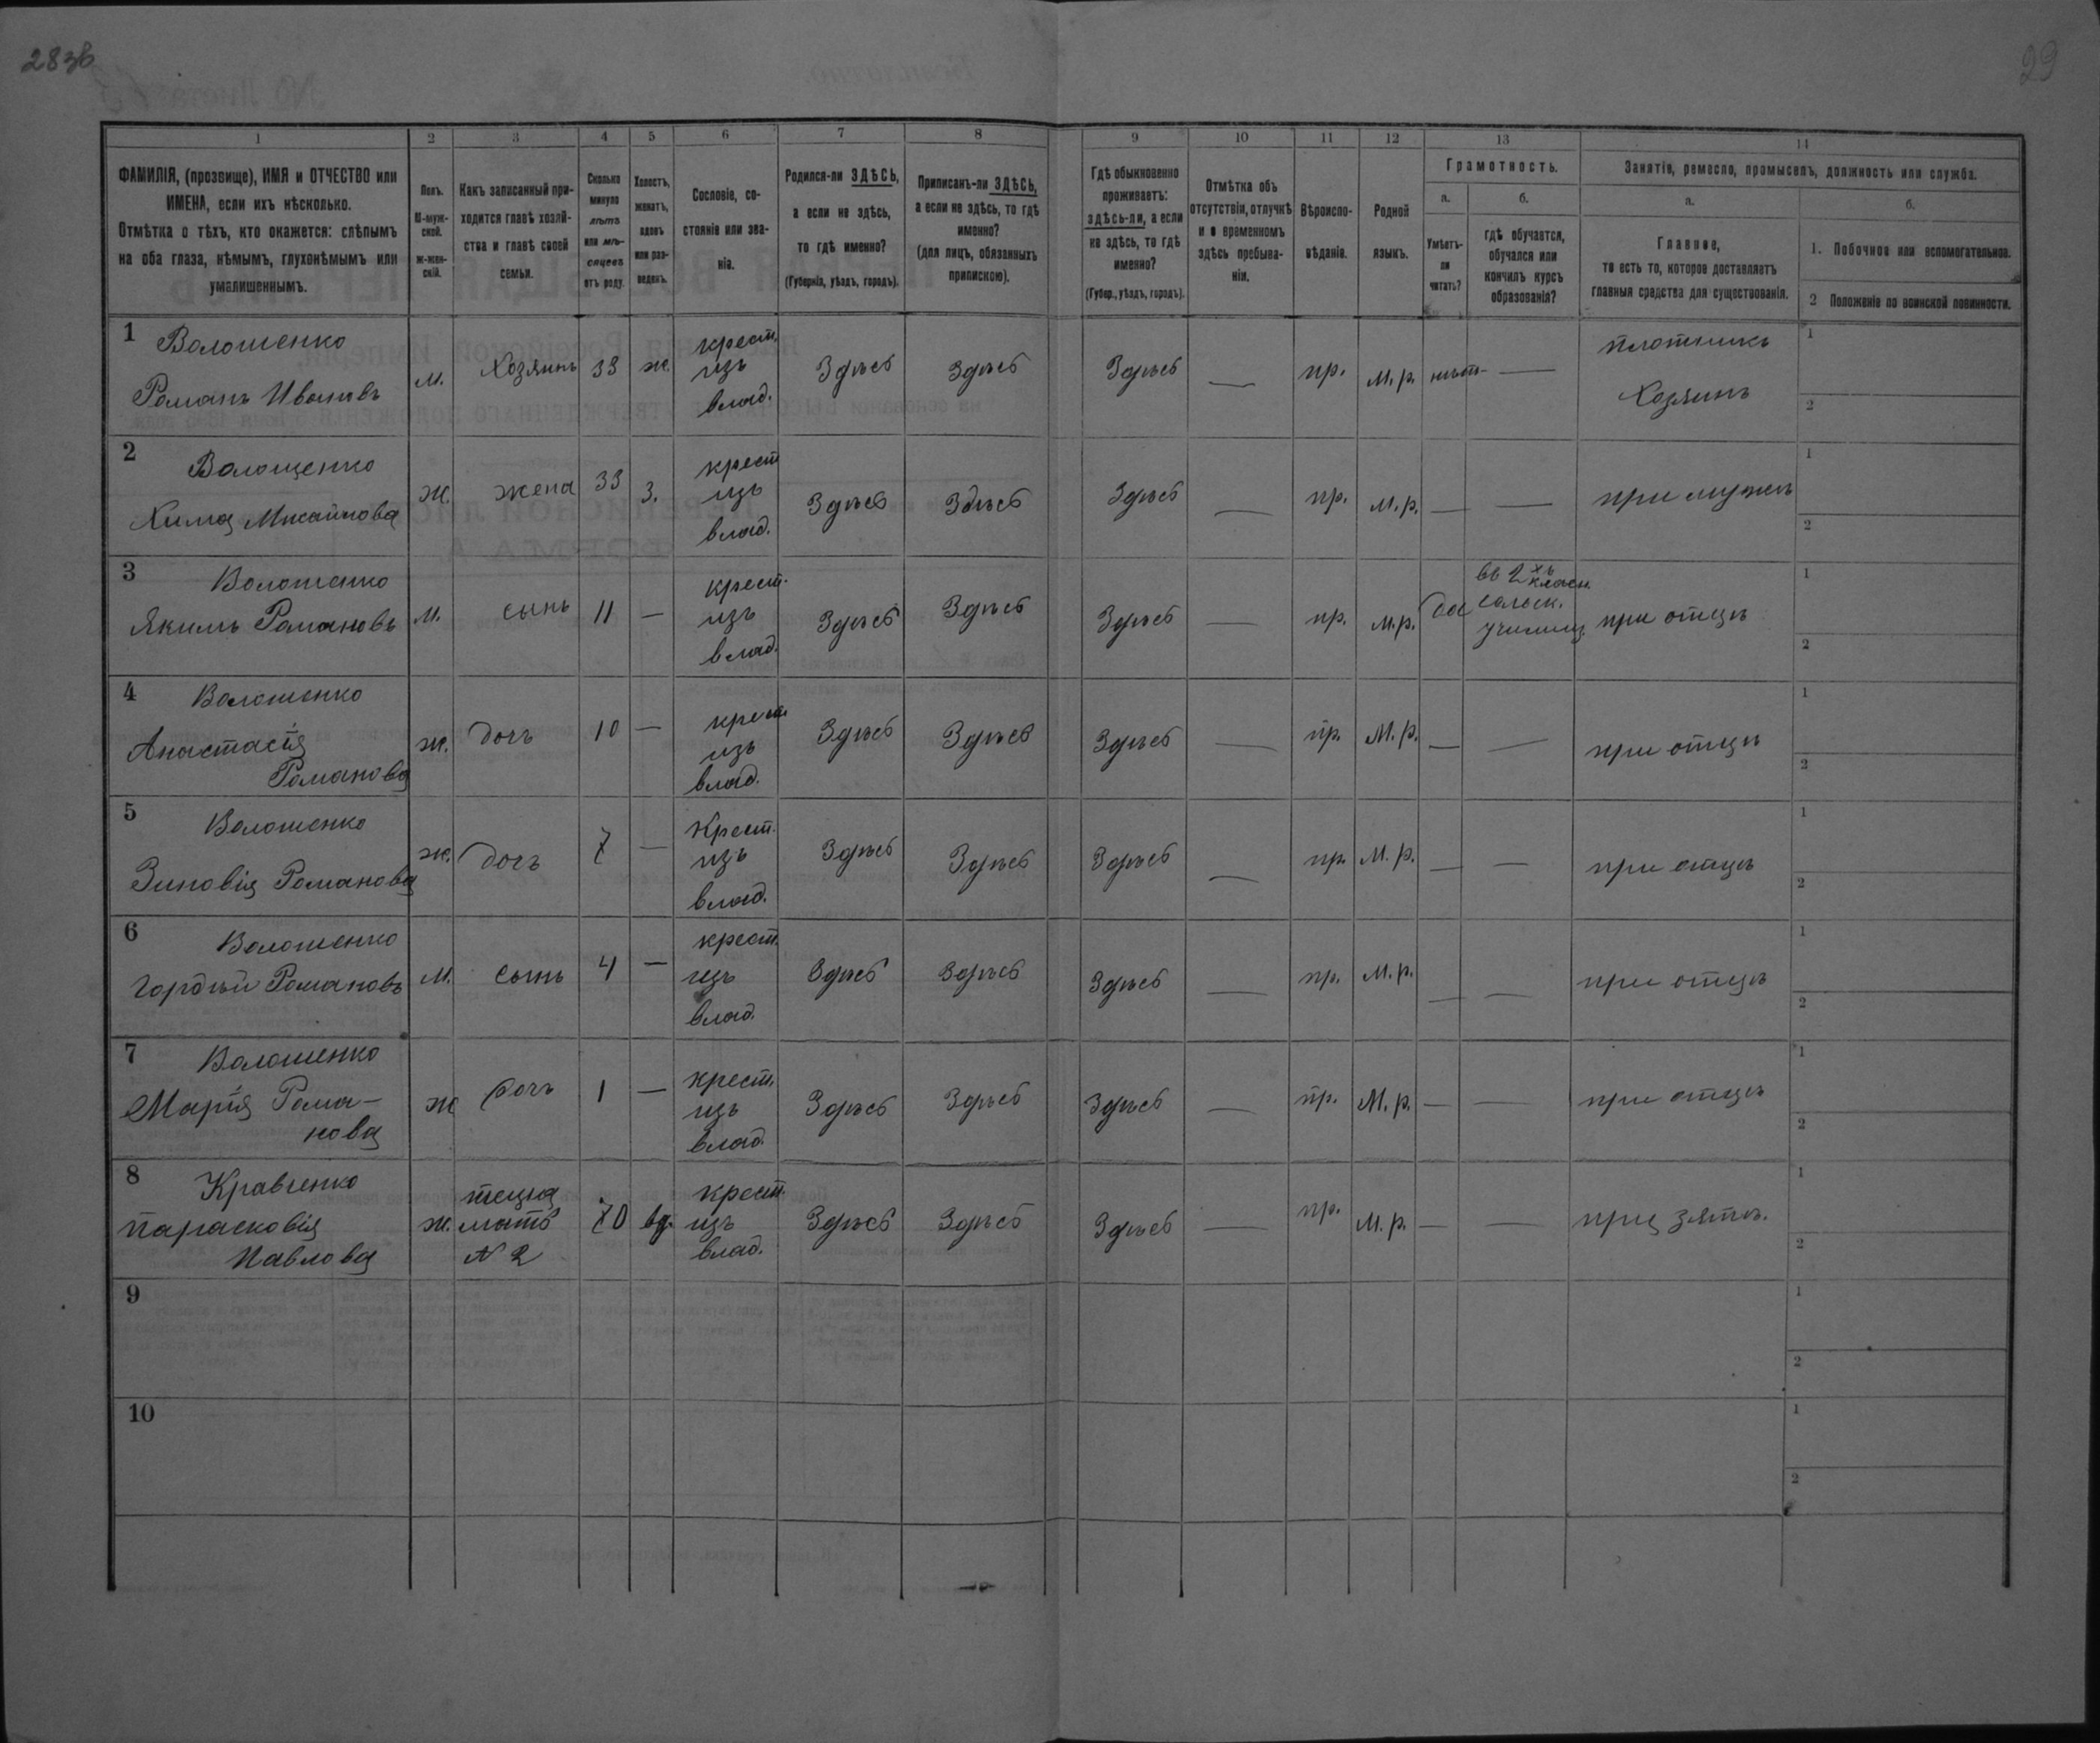 283в
29
1 2 3 4 5 6 7 8 9 10 11 12 13 14
ФАМИЛІЯ, (прозвище), ИМЯ и ОТЧЕСТВО или
ИМЕНА, если ихъ нѣсколько.
Отмѣтка о тѣхъ, кто окажется: слѣпымъ
на оба глаза, нѣмымъ, глухонѣмымъ или
умалишеннымъ.
Полъ.
М-муж-
ской.
ж-жен-
скій.
Какъ записанный при-
ходится главѣ хозяй-
ства и главѣ своей
семьи.
Сколько
минуло
лѣтъ
или мѣ-
сяцевъ
отъ роду.
Холостъ,
женатъ,
вдовъ
или раз-
веденъ.
Сословіе, со-
стояніе или зва-
ніе.
Родился-ли ЗДѢСЬ,
а если не здѣсь,
то гдѣ именно?
(Губернія, уѣздъ, городъ).
Приписанъ-ли ЗДѢСЬ,
а если не здѣсь, то гдѣ
именно?
(для лицъ, обязанныхъ
припискою).
Гдѣ обыкновенно
проживаетъ:
здѣсь-ли, а если
не здѣсь, то гдѣ
именно?
(Губер., уѣздъ, городъ).
Отмѣтка объ
отсутствіи, отлучкѣ
и о временномъ
здѣсь пребыва-
ніи.
Вѣроиспо-
вѣданіе.
Родной
языкъ.
Грамотность.
а.
Умѣетъ-
ли
читать?
б.
гдѣ обучается,
обучался или
кончилъ курсъ
образованія?
Занятіе, ремесло, промыселъ, должность или служба.
а.
Главное,
то есть то, которое доставляетъ
главныя средства для существованія.
б.
1. Побочное или вспомогательное.
2 Положеніе по воинской повинности.
1 Волошенко
Романъ Ивановъ
м.
Хозяинъ
33
ж.
крест.
изъ
влад.
Здѣсь
Здѣсь
Здѣсь
—
пр.
м.р.
нѣтъ
—
плотникъ
Хозяинъ
1
2
2 Волощенко
Хима Михайлова
ж.
жена
33
з.
крест
изъ
влад.
Здѣсь
Здѣсь
Здѣсь
—
пр.
м.р.
—
—
при мужѣ
1
2
3 Волошенко
Якимъ Романовъ
м.
сынъ
11
—
крест.
изъ
влад.
Здѣсь
Здѣсь
Здѣсь
—
пр.
м.р.
да
въ 2хъ класн.
сельск.
училищ.
при отцѣ
1
2
4 Волошенко
Анастасія
Романова
ж.
дочъ
10
—
крест.
изъ
влад.
Здѣсь
Здѣсь
Здѣсь
—
пр.
М.р.
—
—
при отцѣ
1
2
5 Волошенко
Зиновія Романова
ж.
дочъ
7
—
Крест.
изъ
влад.
Здѣсь
Здѣсь
Здѣсь
—
пр.
М.р.
—
—
при отцѣ
1
2
6 Волошенко
Гордѣй Романовъ
м.
сынъ
4
—
крест.
изъ
влад.
Здѣсь
Здѣсь
Здѣсь
—
пр.
М.р.
—
—
при отцѣ
1
2
7 Волошенко
Марія Рома-
нова
ж
дочъ
1
—
крест.
изъ
влад.
Здѣсь
Здѣсь
Здѣсь
—
пр.
М.р.
—
—
при отцѣ
1
2
8 Кравченко
Парасковія
Павлова
ж.
теща
мать
N 2
70
вд.
крест.
изъ
влад.
Здѣсь
Здѣсь
Здѣсь
—
пр.
М.р.
—
—
при зятѣ.
1
2
9
1
2
10
1
2